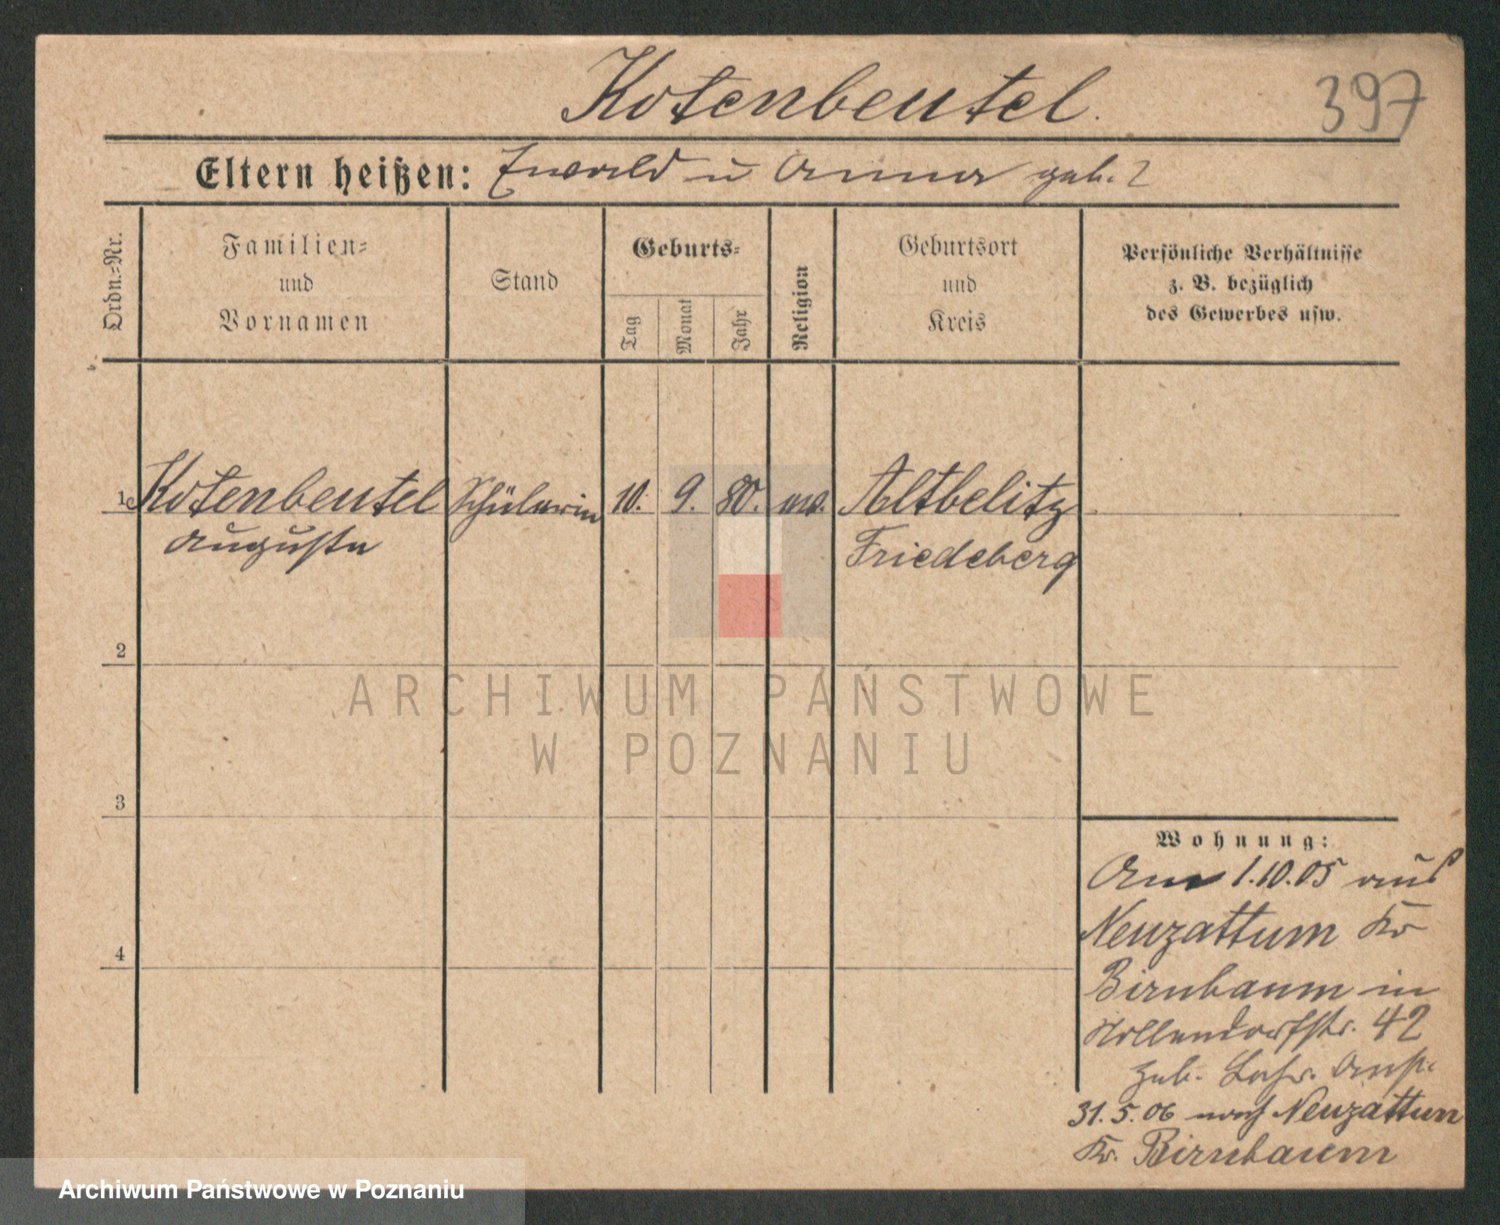 Kotenbeutel.
397
Eltern heißen: Ewald u Anna geb. ?
Ordn.-Nr.
Familien-
und
Vornamen
Stand
Geburts-
Tag
Monat
Jahr
Religion
Geburtsort
und
Kreis
Persönliche Verhältnisse
z. B. bezüglich
des Gewerbes usw.
1 Kotenbeutel Schülerin 10. 9. 80. Altbelitz
Augusta Friedeberg
2
ARCHIWUM PAŃSTWOWE
W POZNANIU
3
Wohnung:
Am 1.10.05 aus
Neuzattum Kr
4
Birnbaum in
42
31. 5. 06 nach Neuzattum
Kr. Birnbaum
Archiwum Państwowe w Poznaniu